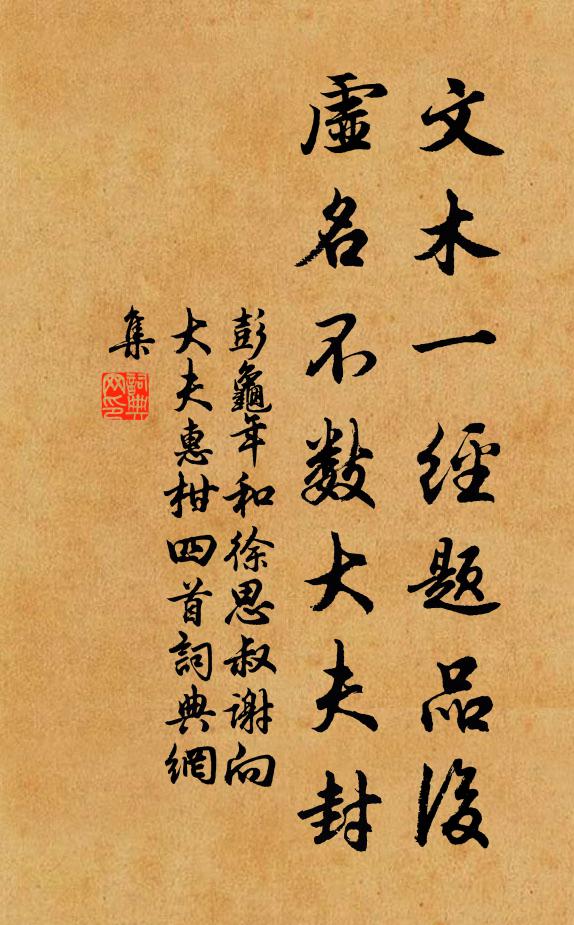 文木一經題品後
虛名不數大夫封
彭龜年和徐思叔謝向
大夫惠柑四首詞典網
集
詞典網印